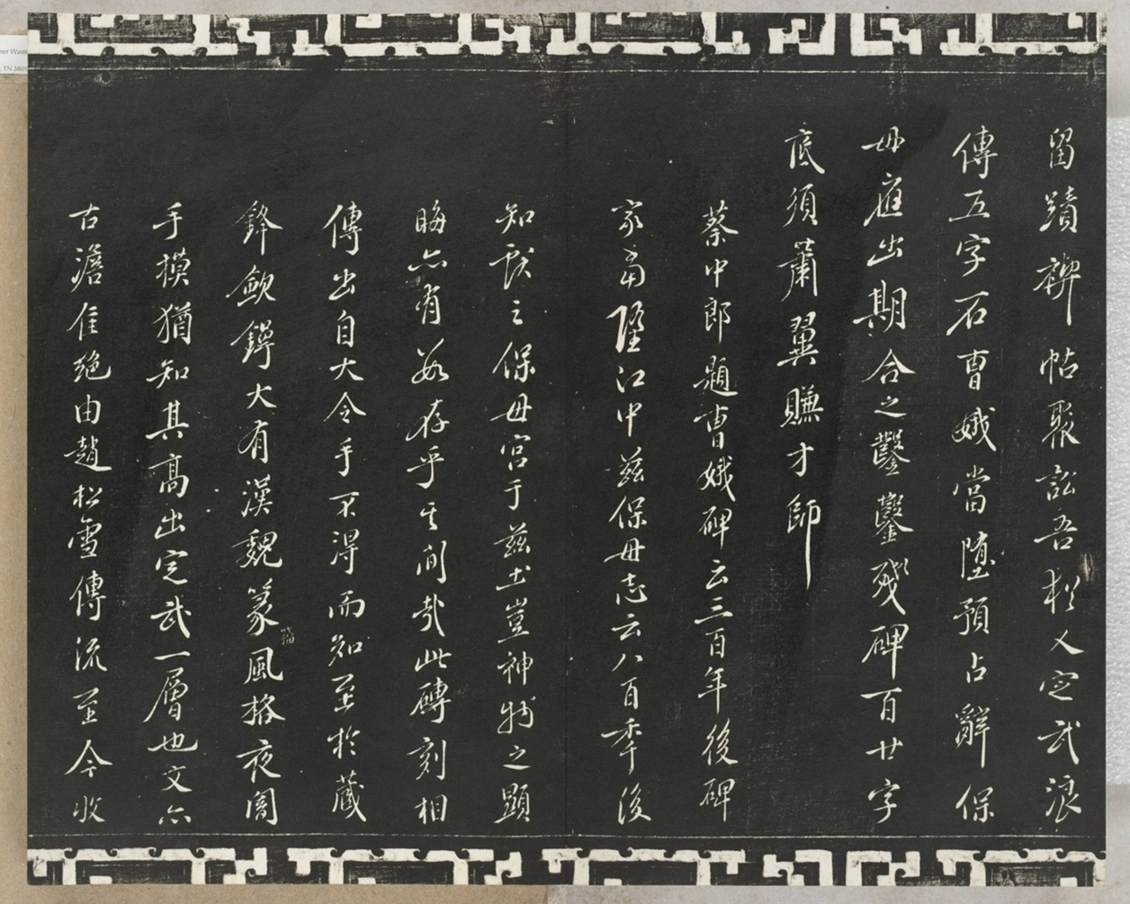 留蹟禊帖聚訟吾猶人定武浪
傳五字石曹娥當墮預占辭保
母庭出期合之鑿鑿殘碑百廿字
底須蕭翼賺才師
蔡中郎題曹娥碑云三百年後碑
冢當墮江中茲保母志云八百季後
知獻之保母宮于茲土豈神物之顯
晦亦有數存乎其間哉此磚刻相
傳出自大令手不得而知至於藏
鋒歛鍔大有漢魏篆籀風格夜闇
手摸猶知其高出定武一層也文亦
古澹佳絕由趙松雪傳流至今收